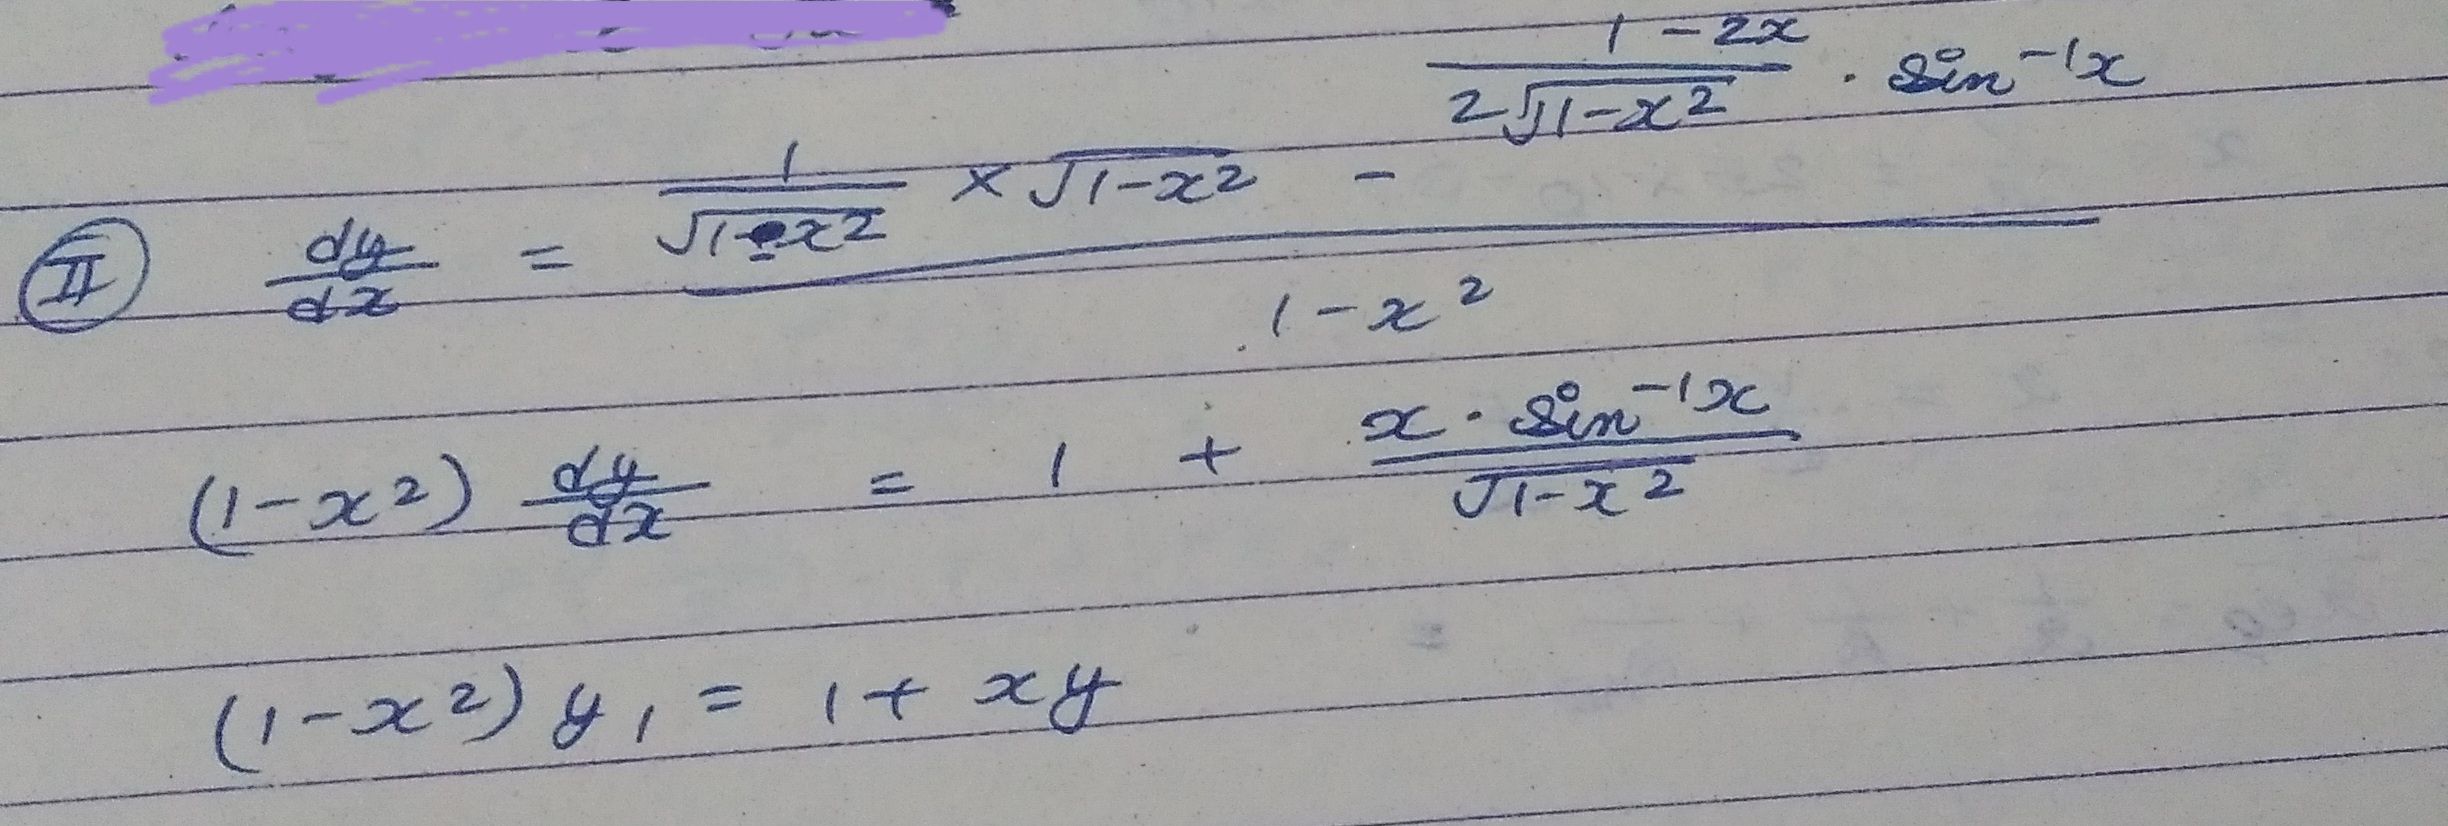 (II) dy/dx = (1/√(1-x²) × √(1-x²) - (1-2x)/(2√(1-x²)) · sin⁻¹x) / (1-x²)
(1-x²) dy/dx = 1 + (x · sin⁻¹x)/√(1-x²)
(1-x²) y₁ = 1 + xy